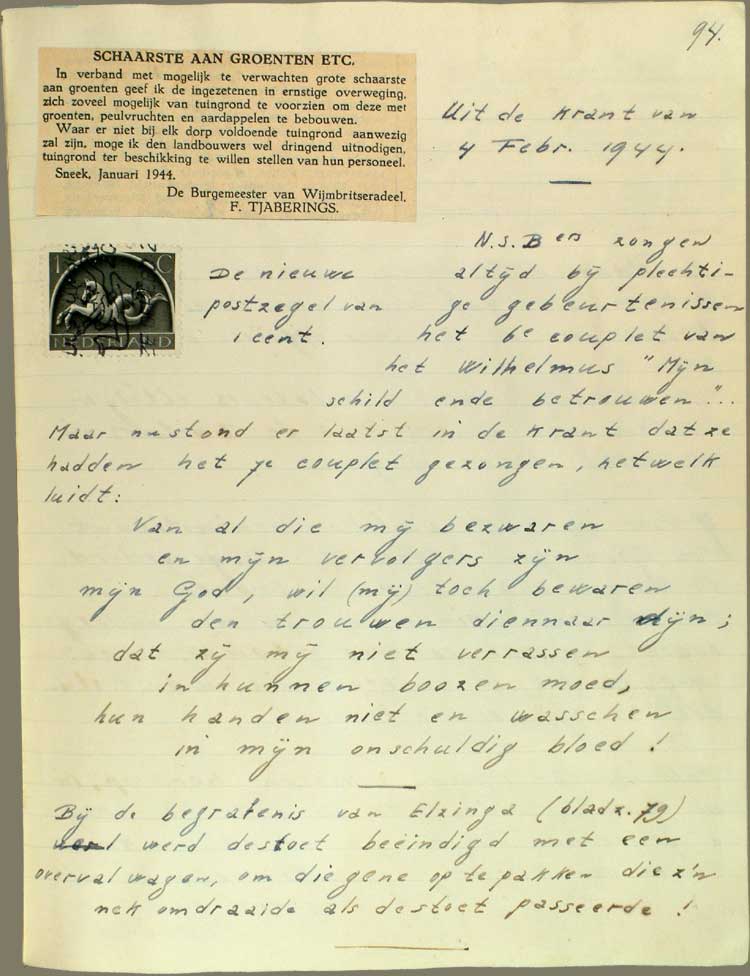 94.
SCHAARSTE AAN GROENTEN ETC.
In verband met mogelijk te verwachten grote schaarste
aan groenten geef ik de ingezetenen in ernstige overweging,
zich zoveel mogelijk van tuingrond te voorzien om deze met
groenten, peulvruchten en aardappelen te bebouwen.
Waar er niet bij elk dorp voldoende tuingrond aanwezig
zal zijn, moge ik den landbouwers wel dringend uitnodigen,
tuingrond ter beschikking te willen stellen van hun personeel.
Sneek, Januari 1944.
De Burgemeester van Wijmbritseradeel.
F. TJABERINGS.
Uit de krant van
4 Febr. 1944.
NEDERLAND
De nieuwe
postzegel van
1 cent.
N.S.Bers zongen
altijd bij plechti-
ge gebeurtenissen
het 6e couplet van
het Wilhelmus "Mijn
schild ende betrouwen"..
Maar nu stond er laatst in de krant dat ze
hadden het 7e couplet gezongen, hetwelk
luidt:
Van al die mij bezwaren
en mijn vervolgers zijn
mijn God, wil (mij) toch bewaren
den trouwen diennaar dijn;
dat zij mij niet verrassen
in hunnen boozen moed,
hun handen niet en wasschen
in mijn onschuldig bloed!
Bij de begrafenis van Elzinga (bladz. 79)
werd de stoet beëindigd met een
overvalwagen, om diegene op te pakken die z'n
nek omdraaide als de stoet passeerde!